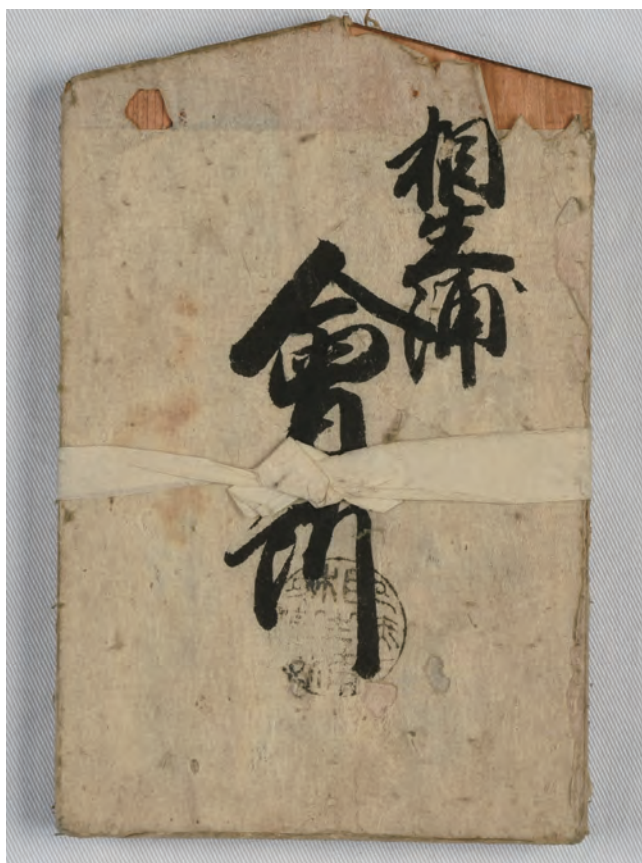 相生浦
會所